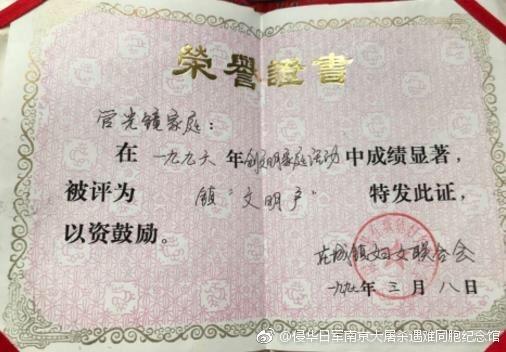 榮譽證書
官光镜家庭：
在一九九六年创文明家庭活动中成绩显著，
被评为镇“文明户”特发此证，
以资鼓励。
城镇妇女联合会
一九九七年三月八日
@侵华日军南京大屠杀遇难同胞纪念馆